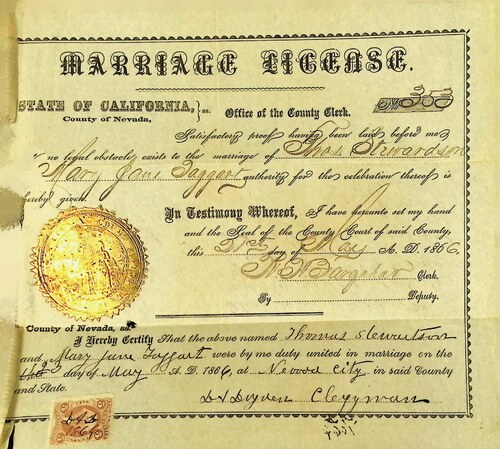 MARRIAGE LICENSE.
STATE OF CALIFORNIA, }ss. Office of the County Clerk.
County of Nevada,
Satisfactory proof having been laid before me
no legal obstacle exists to the marriage of Thos. Stewardson
Mary Jane Taggart authority for the celebration thereof is
hereby given.
In Testimony Whereof, I have hereunto set my hand
and the Seal of the County Court of said County,
this day of May A. D. 1866.
Clerk.
By Deputy.
County of Nevada, ss.
I Hereby Certify That the above named Thomas Stewartson
and Mary Jane Taggart were by me duly united in marriage on the
day of May A. D. 1866, at Nevada City in said County
and State.
D A Dryden Clergyman
DAD
1866